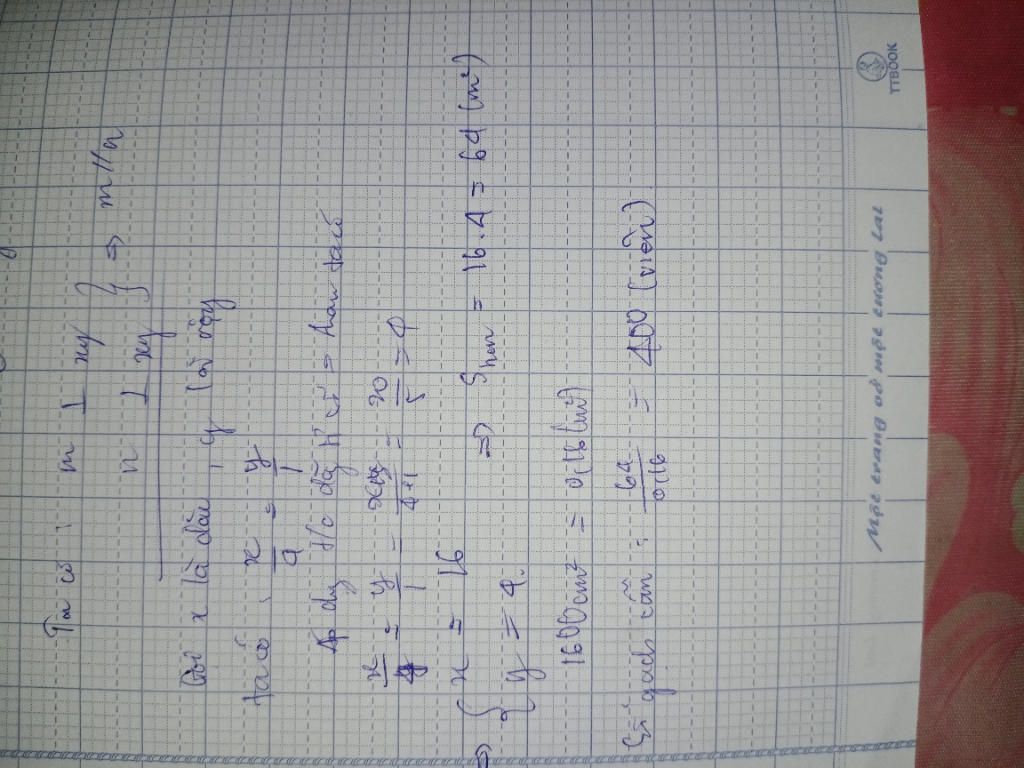 Ta có : m ⊥ xy
n ⊥ xy } ⇒ m // n
Gọi x là dài, y là rộng
ta có : x/4 = y/1
Áp dụng t/c dãy tỉ số = nhau ta có
x/4 = y/1 = x+y/4+1 = 20/5 = 4
⇒ { x = 16
y = 4. ⇒ Shcn = 16.4 = 64 (m²)
1600cm² = 0,16 (m²)
Số gạch cần : 64/0,16 = 400 (viên)
Một trang vở một tương lai
TTBOOK